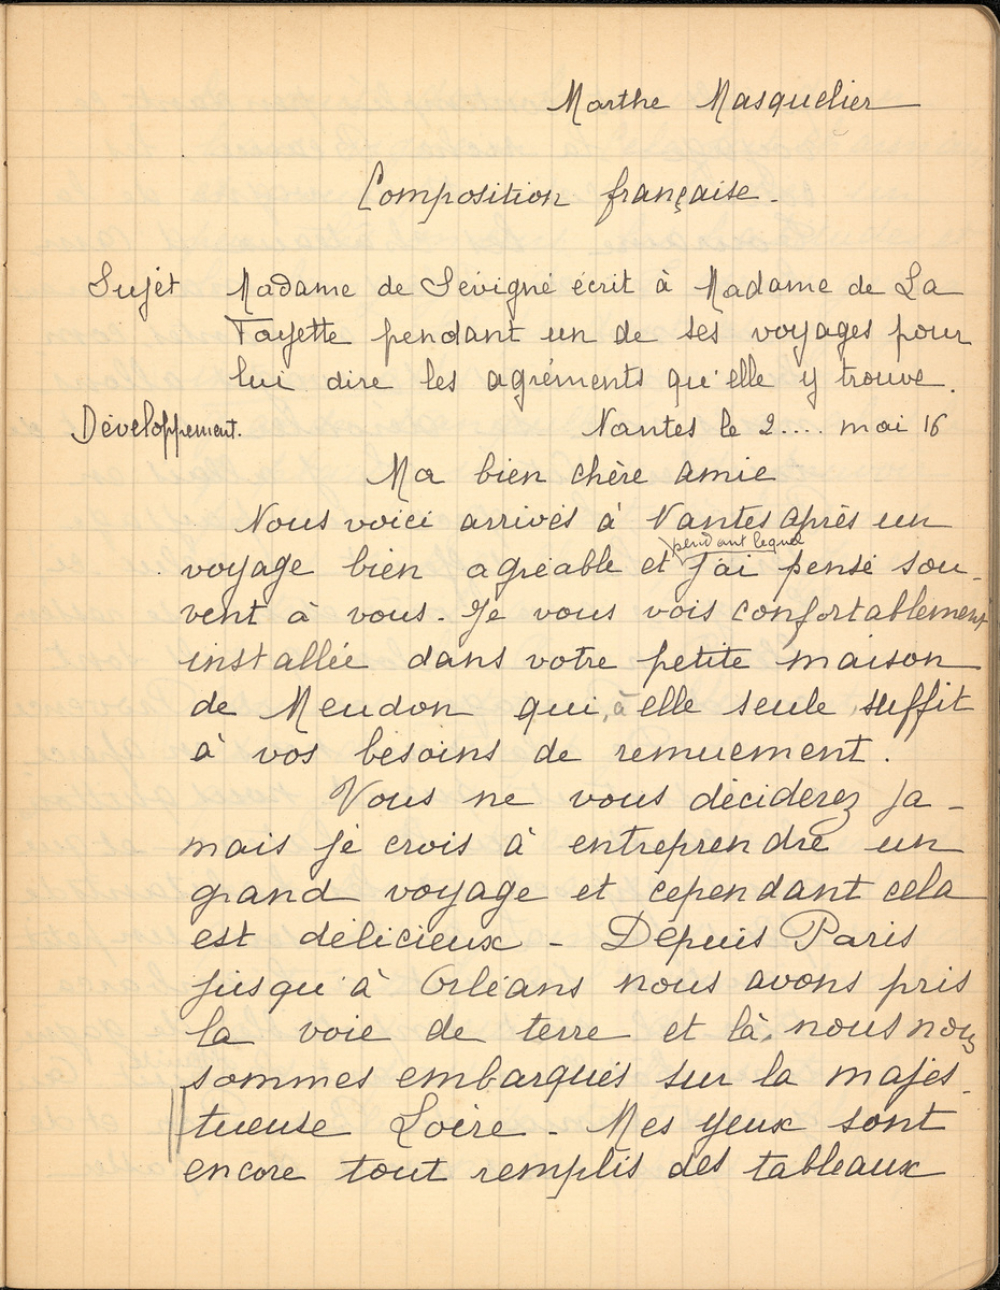 Marthe Masquelier
Composition française.
Sujet Madame de Sévigné écrit à Madame de La
Fayette pendant un de ses voyages pour
lui dire les agréments qu'elle y trouve.
Développement. Nantes le 2.... mai 16
Ma bien chère amie
Nous voici arrivés à Nantes après un
pendant lequel
voyage bien agréable et j'ai pensé sou-
vent à vous. Je vous vois confortablement
installée dans votre petite maison
de Meudon qui, à elle seule, suffit
à vos besoins de remuement.
Vous ne vous déciderez ja-
mais je crois à entreprendre un
grand voyage et cependant cela
est délicieux - Depuis Paris
jusqu'à Orléans nous avons pris
la voie de terre et là, nous nous
sommes embarqués sur la majes-
tueuse Loire - Mes yeux sont
encore tout remplis des tableaux